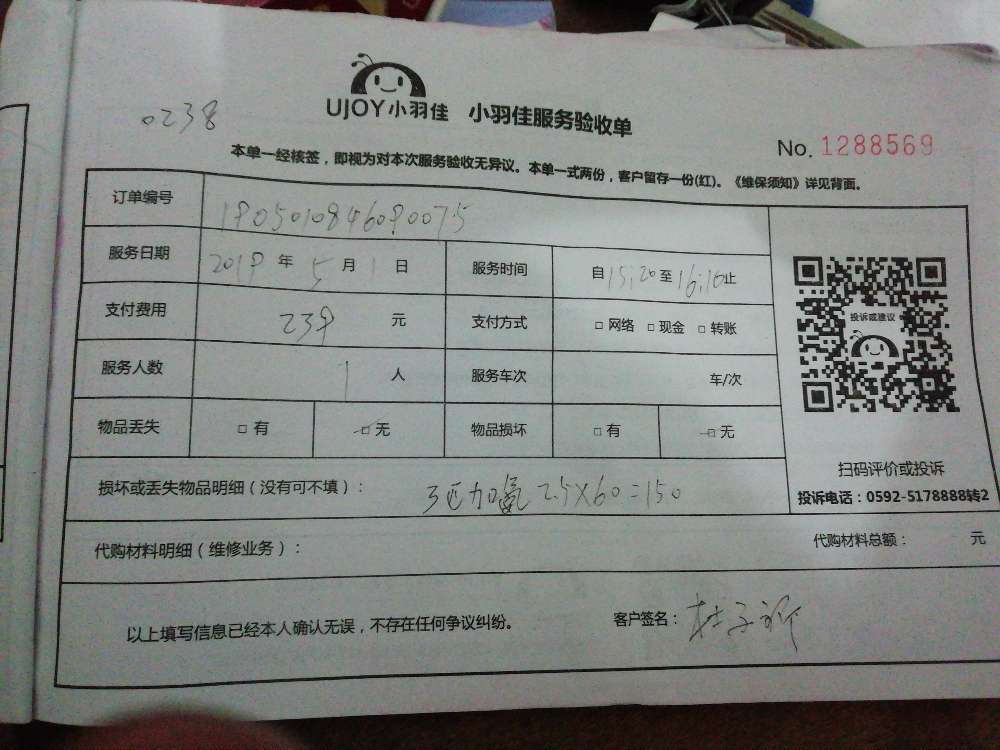 UJOY小羽佳 小羽佳服务验收单
0238
No. 1288569
本单一经核签，即视为对本次服务验收无异议。本单一式两份，客户留存一份(红)。《维保须知》详见背面。
订单编号 1905010846090075
服务日期 2019 年 5 月 1 日 服务时间 自 15:20 至 16:10 止
支付费用 239 元 支付方式 □ 网络 □ 现金 □ 转账
服务人数 1 人 服务车次 车/次
物品丢失 □ 有 □ 无 物品损坏 □ 有 □ 无
投诉或建议
扫码评价或投诉
投诉电话：0592-5178888转2
损坏或丢失物品明细（没有可不填）： 3匹加氟 2.5×60=150
代购材料明细（维修业务）： 代购材料总额： 元
以上填写信息已经本人确认无误，不存在任何争议纠纷。 客户签名：